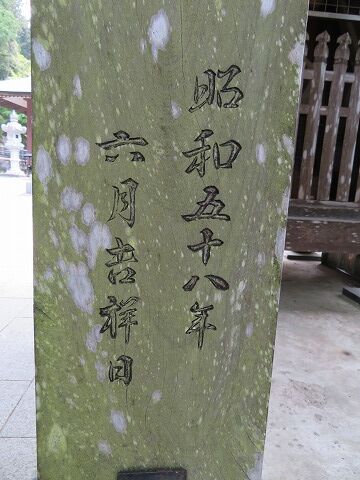 昭和五十八年
六月吉祥日